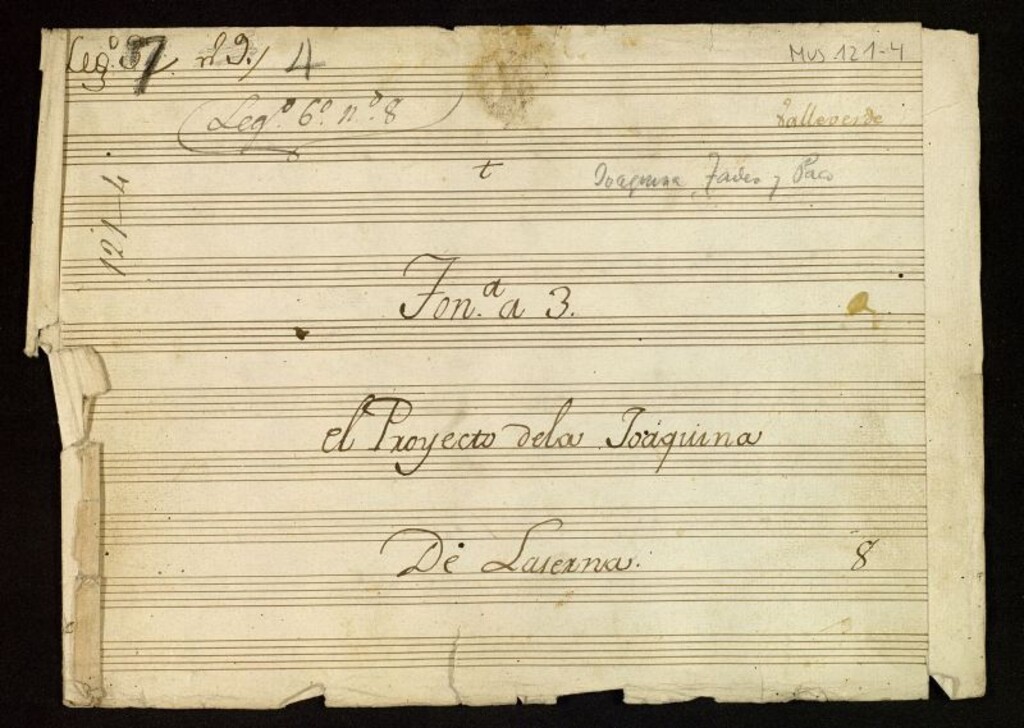 Leg.º 37. n 9./ 4
MUS 121-4
Legº. 6º. n.º 8
Valleverde
t
Joaquina, Tadeo y Paco
121-4
Ton.ª a 3.
el Proyecto dela Joaquina
De Laserna.
8